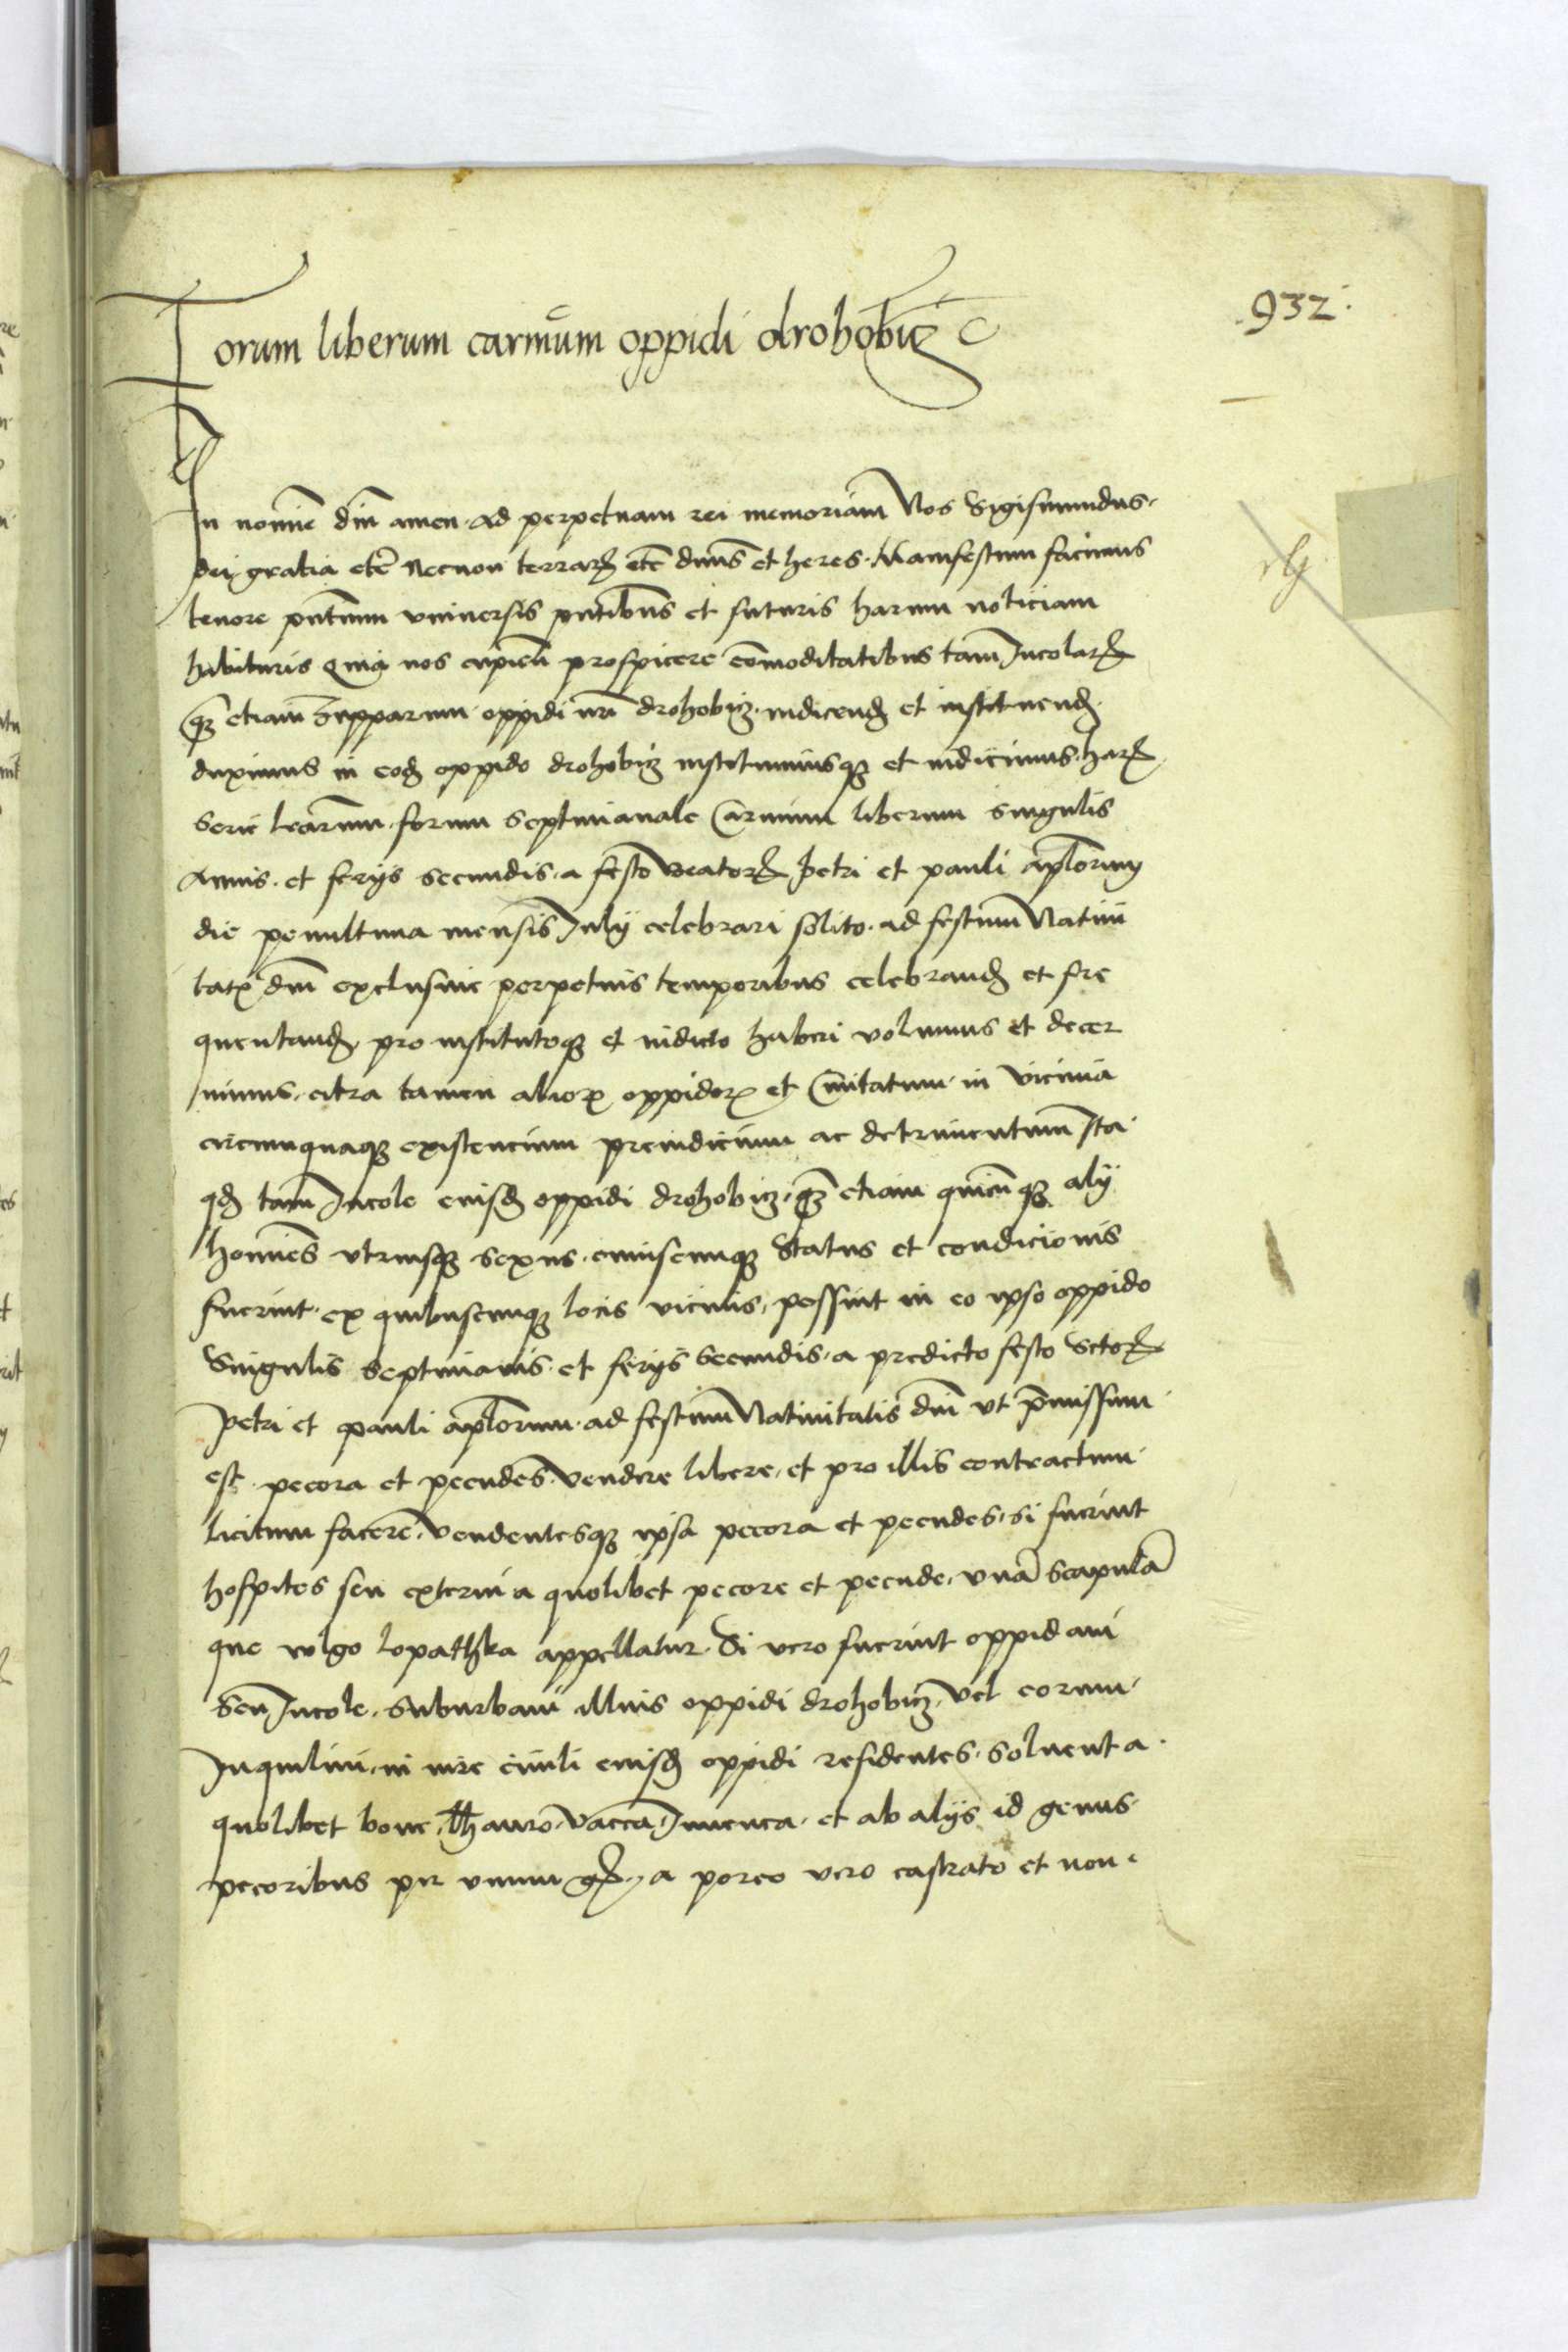 .932.
Forum liberum carnium oppidi drohobicz
In nomine dni amen. Ad perpetuam rei memoriam Nos Sigismundus.
dei gratia etc Necnon terrarum etc dnus et heres. Manifestum facimus
tenore pntium universis pntibus et futuris harum noticiam
habituris Quia nos cupien prospicere comoditatibus tam Incolarum
qm etiam Supparum oppidi nri drohobicz. indicend et instituend.
duximus in eod oppido drohobicz instituimusque et indicimus. harum
serie learum. forum septimanale Carnium liberum singulis
Annis. et ferijs secundis. a festo Beatorum Petri et pauli aplorum
die penultima mensis July celebrari solito. ad festum Nativi
tatis dni exclusive perpetuis temporibus celebrand et fre
quentand, pro institutoque et indicto haberi volumus et decer
nimus. citra tamen aliorum oppidorum et Civitatum in vicinia
circumquaque existencium preiudicium ac detrimentum Ita
qd tam Incole eiusd oppidi drohobicz, qm etiam quicunque aly
homines utriusque sexus. cuiuscunque Status et condicionis
fuerint. ex quibuscunque locis vicinis, possint in eo ipso oppido
Singulis Septimanis et ferijs Secundis. a predicto festo Sctorum
Petri et pauli aplorum. ad festum Nativitatis dni ut premissum
est. pecora et pecudes. vendere libere, et pro illis contractum
licitum facere. Vendentesque ipsa pecora et pecudes. si fuerint
hospites seu externi a quolibet pecore et pecude, una scapula
que vulgo lopathka appellatur. Si vero fuerint oppidani
Seu Incole. Suburbani illius oppidi drohobicz, vel eorum
Inquilini, in iure civili eiusd oppidi residentes. Solvent a
quolibet bove, Thauro, vacca, Iuvenca. et ab alijs id genus
pecoribus per unum gr, a porco vero castrato et non